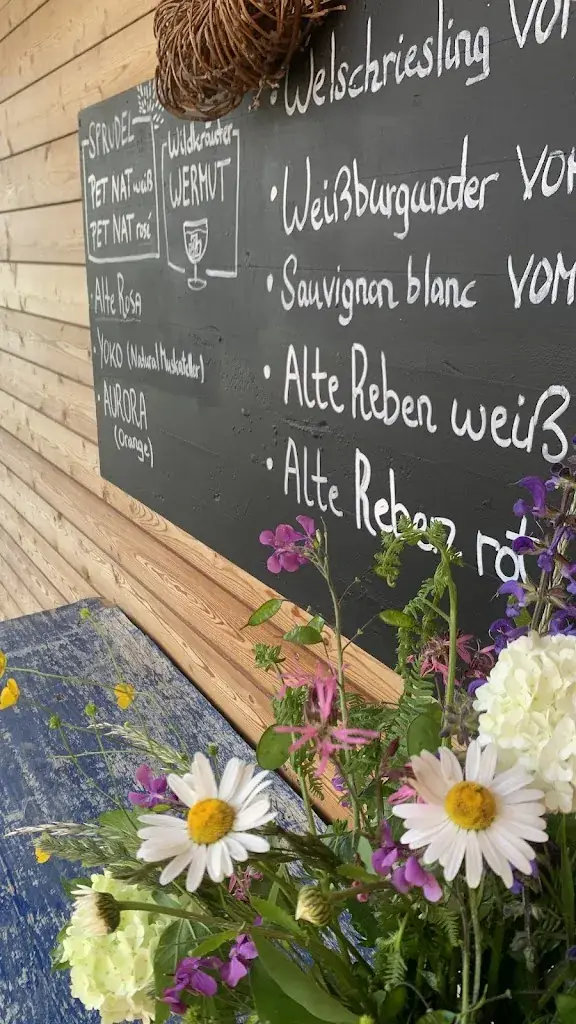 SPRUDEL
PET NAT weiß
PET NAT rosé
Wildkräuter
WERMUT
· Alte Rosa
· YOKO (Natural Muskateller)
· AURORA
(Orange)
· Welschriesling VOM
· Weißburgunder VOM
· Sauvignon blanc VOM
· Alte Reben weiß
· Alte Reben rot